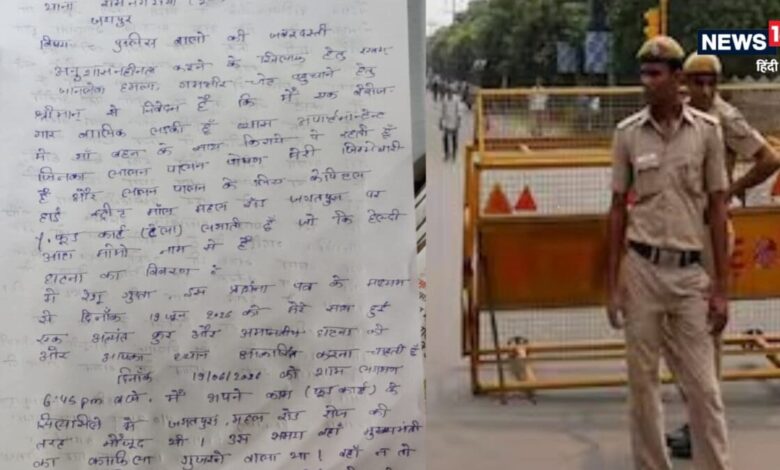 थाना रामनगरिया
जयपुर
विषय पुलिस वालो की जबरदस्ती
अनुशासनहीनता करने के खिलाफ हेतु एवम्
जानलेवा हमला, गम्भीर चोट पहुचाने हेतु
श्रीमान् से निवेदन है कि मैं एक बेरोज-
गार बालिक लड़की हूँ व्यास अपार्टमेन्ट
में माँ बहन के साथ किराये पे रहती हूँ
जिनका लालन पालन पोषण मेरी जिम्मेदारी
है और लालन पालन के लिये केपिटल
हाई स्ट्रीट मॉल महल रोड जगतपुरा पर
1. फूड कार्ट (ठेला) लगाती हूँ जो कि हेल्दी
आटा मोमो नाम से है
घटना का विवरण :
मैं रेणु गुप्ता इस प्रार्थना पत्र के माध्यम
से दिनाँक 19 जून 2026 को मेरे साथ हुई
एक अत्यंत क्रुर और अमानवीय घटना की
और आपका ध्यान आकर्षित करना चाहती हूँ
दिनाँक 19/06/2026 को शाम लगभग
6:45 pm बजे, मैं अपने काम (फूड कार्ट) के
सिलसिले में जगतपुरा, महल रोड रोज की
तरह मौजूद थी। उस समय वहाँ मुख्यमंत्री
का काफिला गुजरने वाला था। वहाँ न तो
NEWS 1
हिंदी